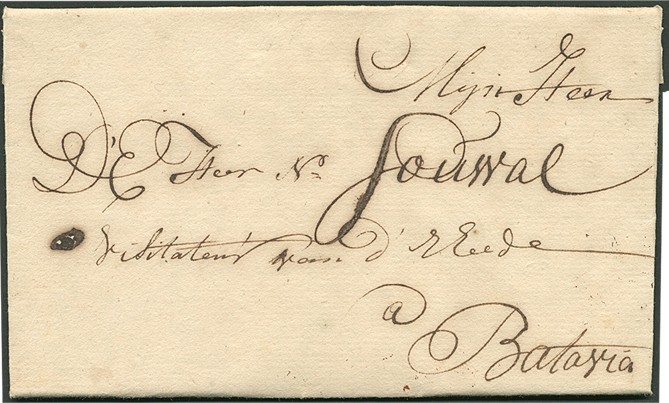 Mijn Heer
D'E Heer Ns. Jouwal
Visitateur van d' Rheede
a
Batavia